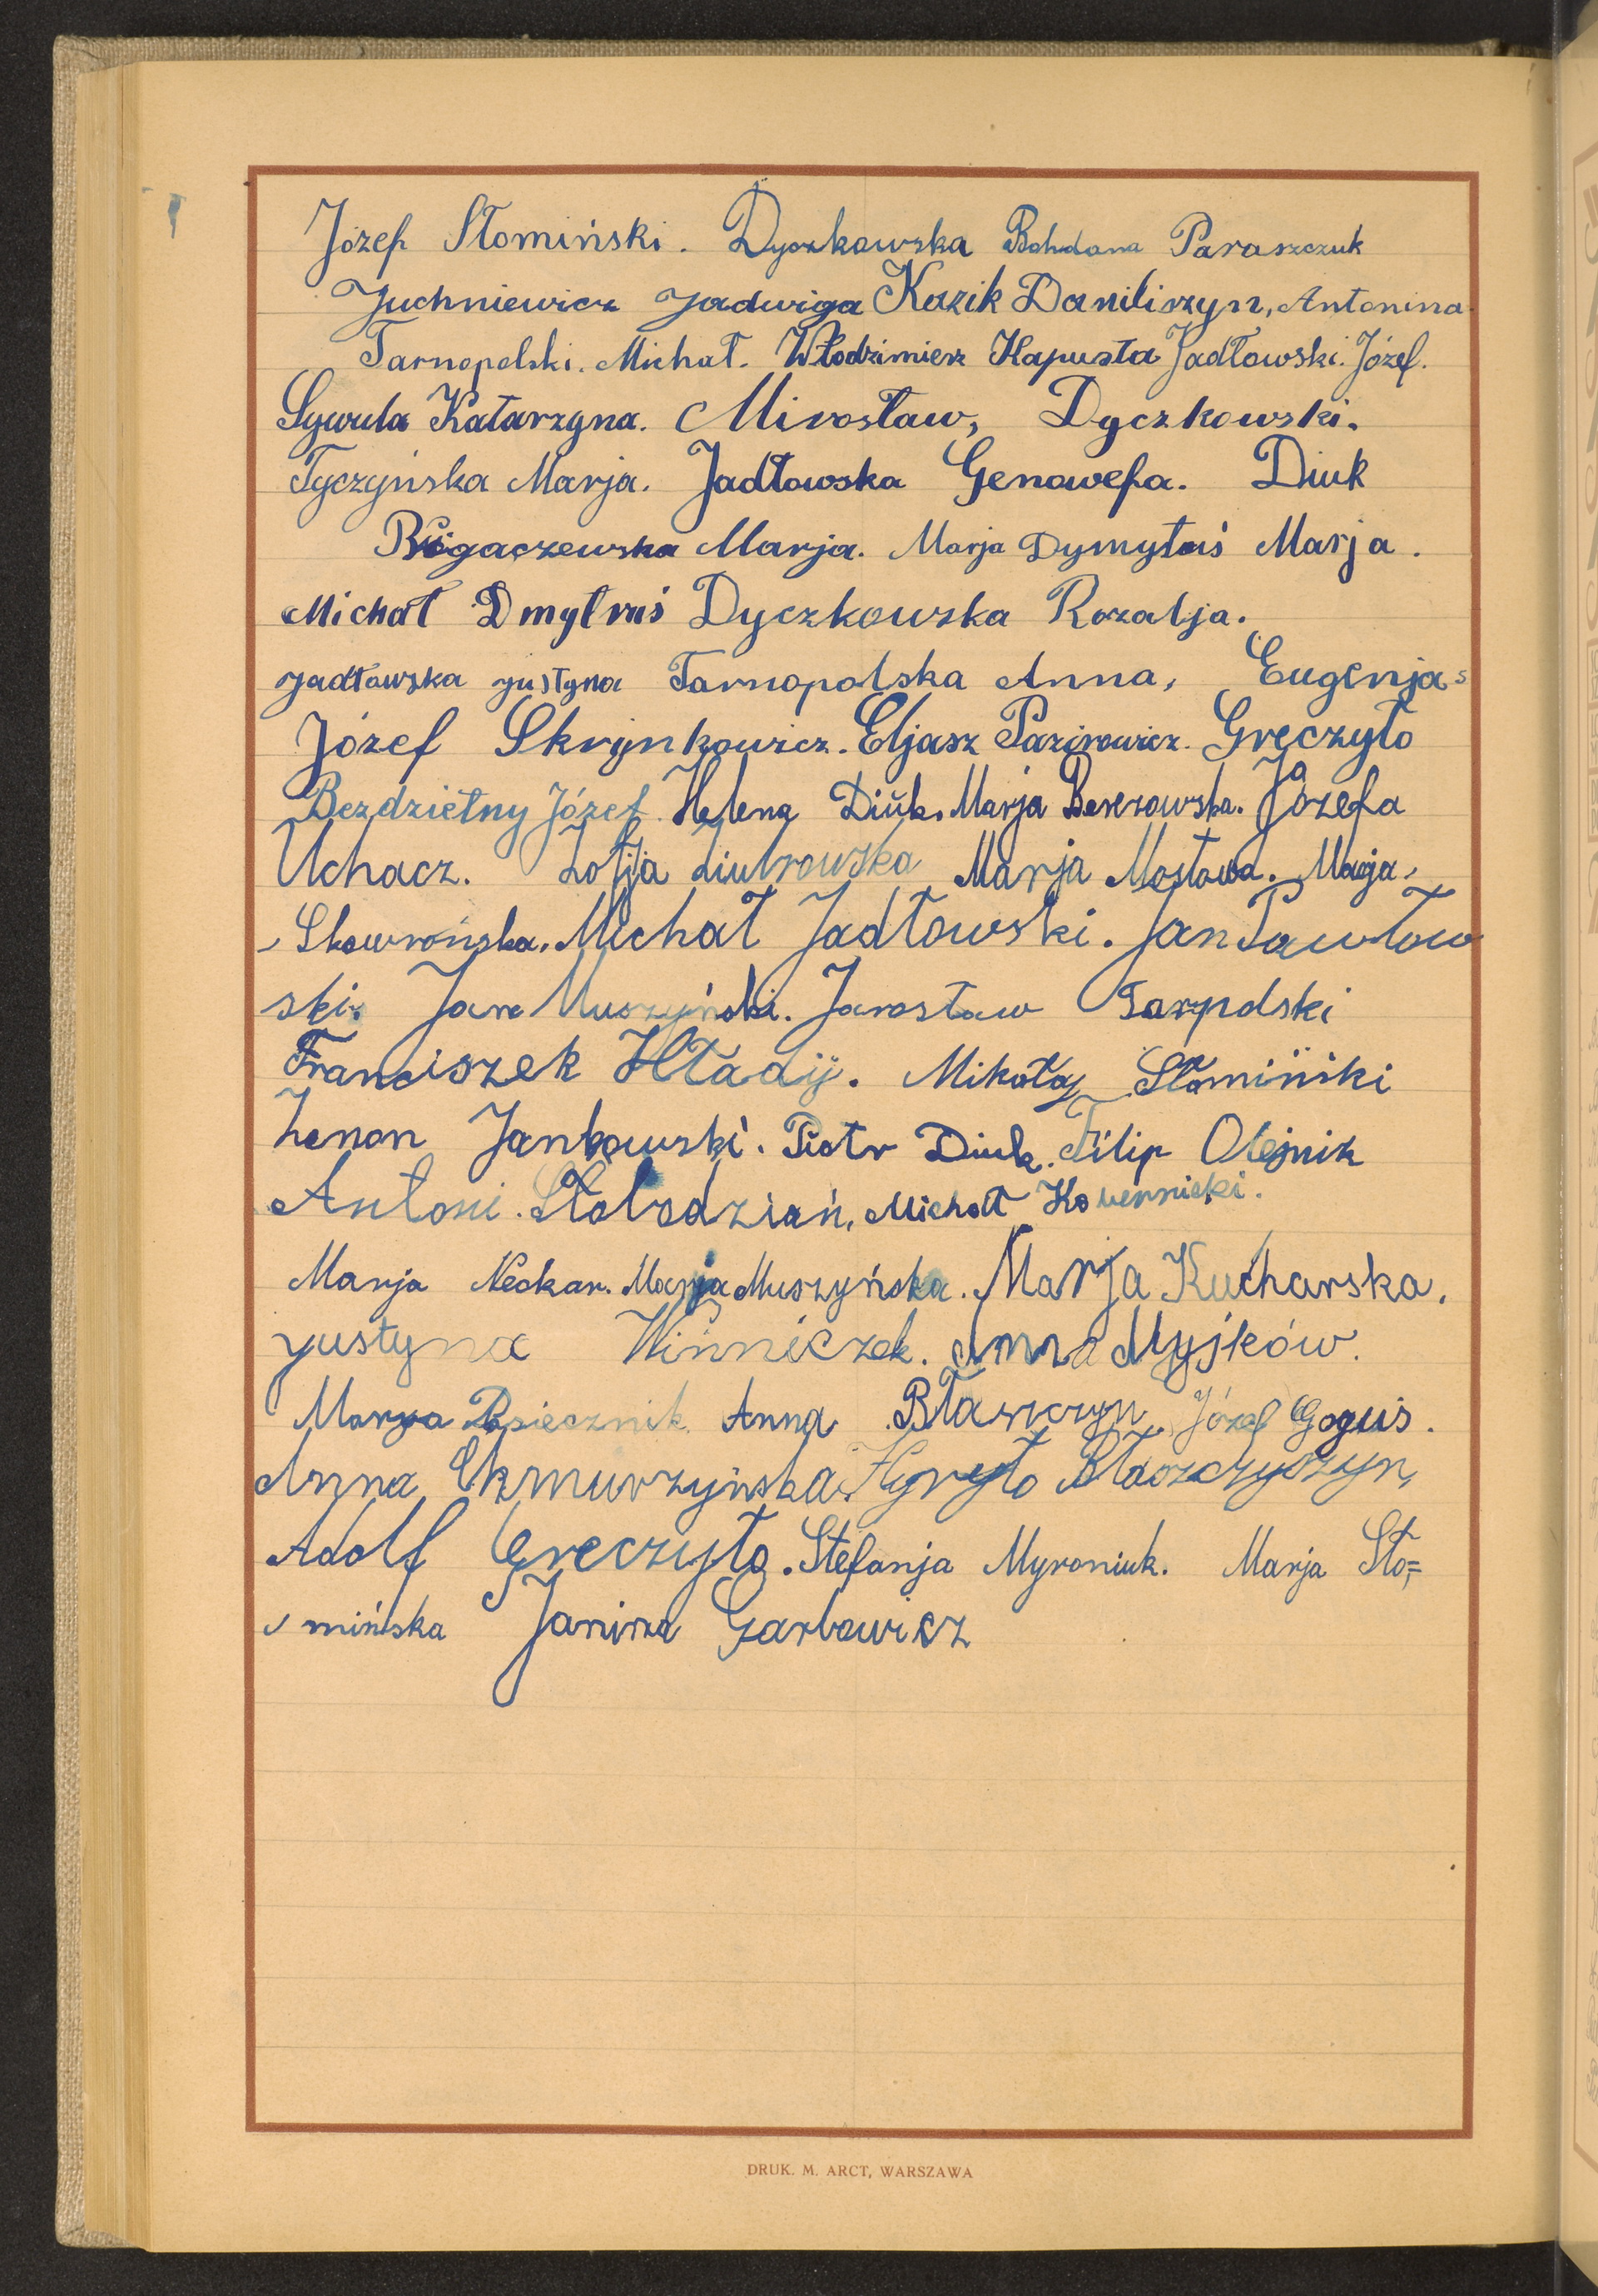 Józef Słomiński. Dyczkowska Bohdana Paraszczuk
Juchniewicz Jadwiga Kazik Daniliszyn, Antonina
Tarnopolski. Michał. Włodzimierz Kapusta Jadłowski. Józef.
Sywula Katarzyna. Mirosław, Dyczkowski.
Tyczyńska Marja. Jadłowska Genowefa. Diuk
Bugaczewska Marja. Marja Dymytruś Marja.
Michał Dmytruś Dyczkowska Rozalja.
Jadłowska Justyna Tarnopolska Anna, Eugenja
Józef Skrynkowicz. Eljasz Pazirowicz. Greczyło
Bezdzietny Józef. Helena Diuk. Marja Berezowska. Józefa
Uchacz. Zofja Marja Mostowa. Marja
Skowrońska. Michał Jadłowski. Jan Pawłow
ski. Jan Muszyński. Jarosław
Franciszek Hładij. Mikołaj Słomiński
Zenon Jankowski. Piotr Diuk. Filip Olejnik
Antoni. Słobodzian, Michał Kowernicki.
Marja Neckar. Marja Muszyńska. Marja Kucharska.
Justyna Winniczek. Anna Myjków.
Marya Pasiecznik. Anna Józef Goguś.
Anna Chmurzyńska. Hyryło Błaszczyszyn,
Adolf Greczyło. Stefanja Myroniuk. Marja Sło=
mińska Janina Garbowicz
DRUK. M. ARCT, WARSZAWA